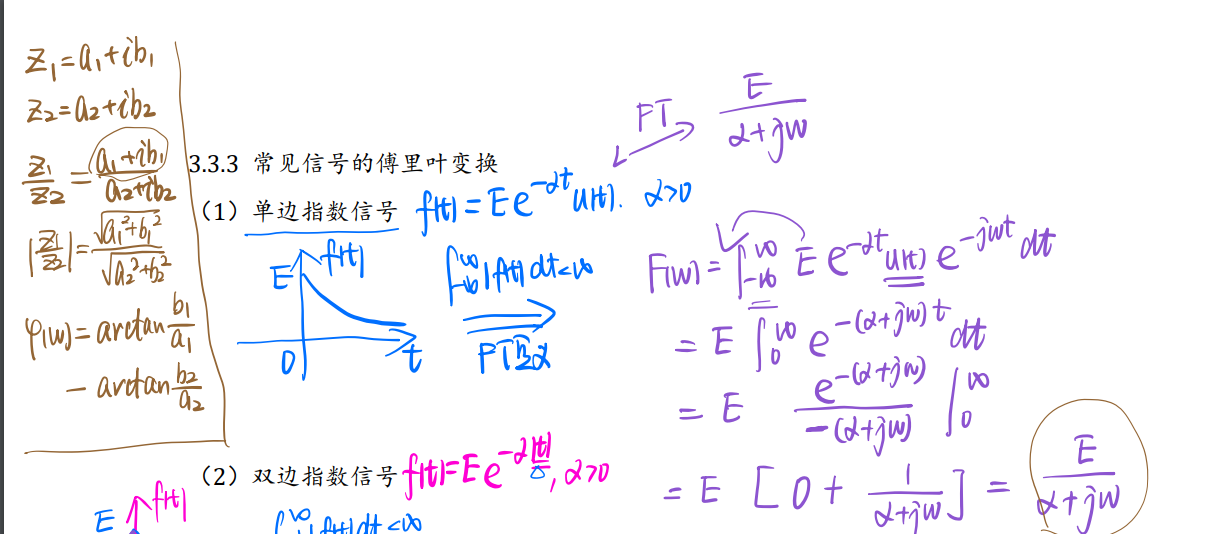 z₁=a₁+ib₁
z₂=a₂+ib₂
z₁/z₂ = (a₁+ib₁)/(a₂+ib₂)
|z₁/z₂| = √(a₁²+b₁²)/√(a₂²+b₂²)
φ(w)=arctan b₁/a₁
- arctan b₂/a₂
FT E/(α+jw)
3.3.3 常见信号的傅里叶变换
(1)单边指数信号 f(t)=Ee^(-αt)u(t). α>0
E f(t)
0 t
∫_(-∞)^∞ |f(t)| dt<∞
F(w)= ∫_(-∞)^∞ E e^(-αt) u(t) e^(-jwt) dt
= E ∫_0^∞ e^(-(α+jw)t) dt
= E e^(-(α+jw))/(-(α+jw)) |_0^∞
= E [0 + 1/(α+jw)] = E/(α+jw)
(2)双边指数信号 f(t)=Ee^(-α|t|), α>0
E f(t)
|f(t)|dt<∞